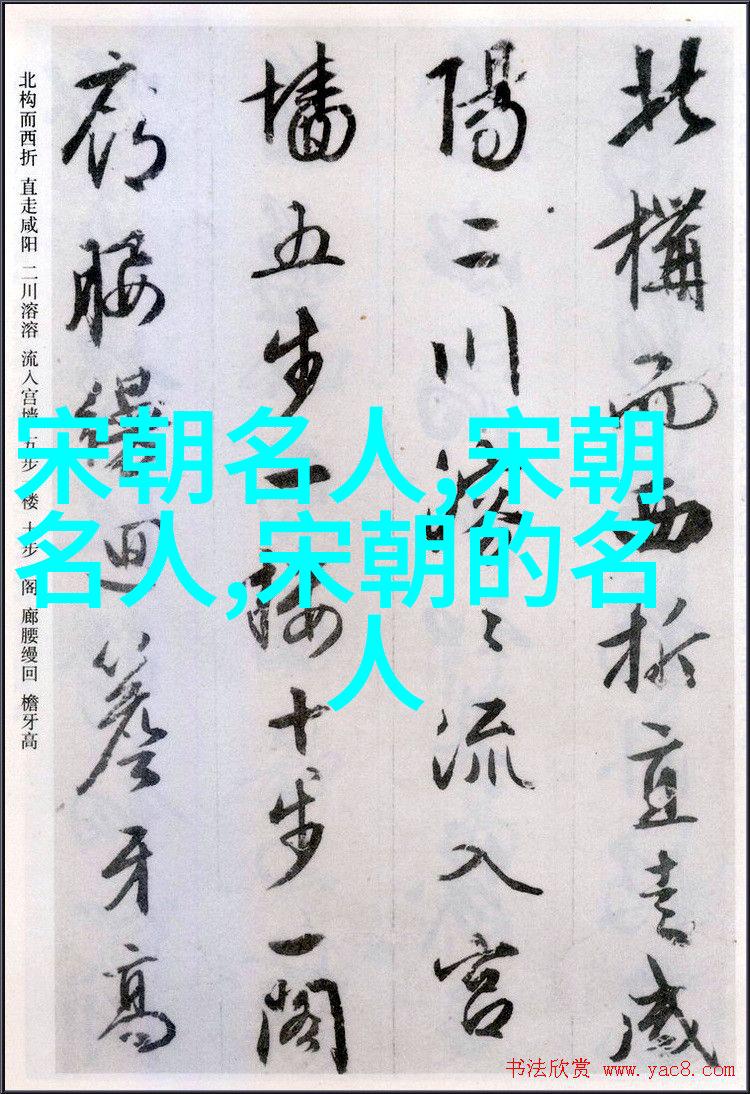 北構而西折直走咸
陽二川溶々流入宮
墻五步一樓十步一閣
廊腰縵迴簷牙高
北构而西折 直走咸阳 二川溶溶 流入宫墙 五步一楼 十步一阁 廊腰缦回 檐牙高
宋朝名人,宋朝
名人,宋朝的名
人
书法欣赏 www.yac8.com